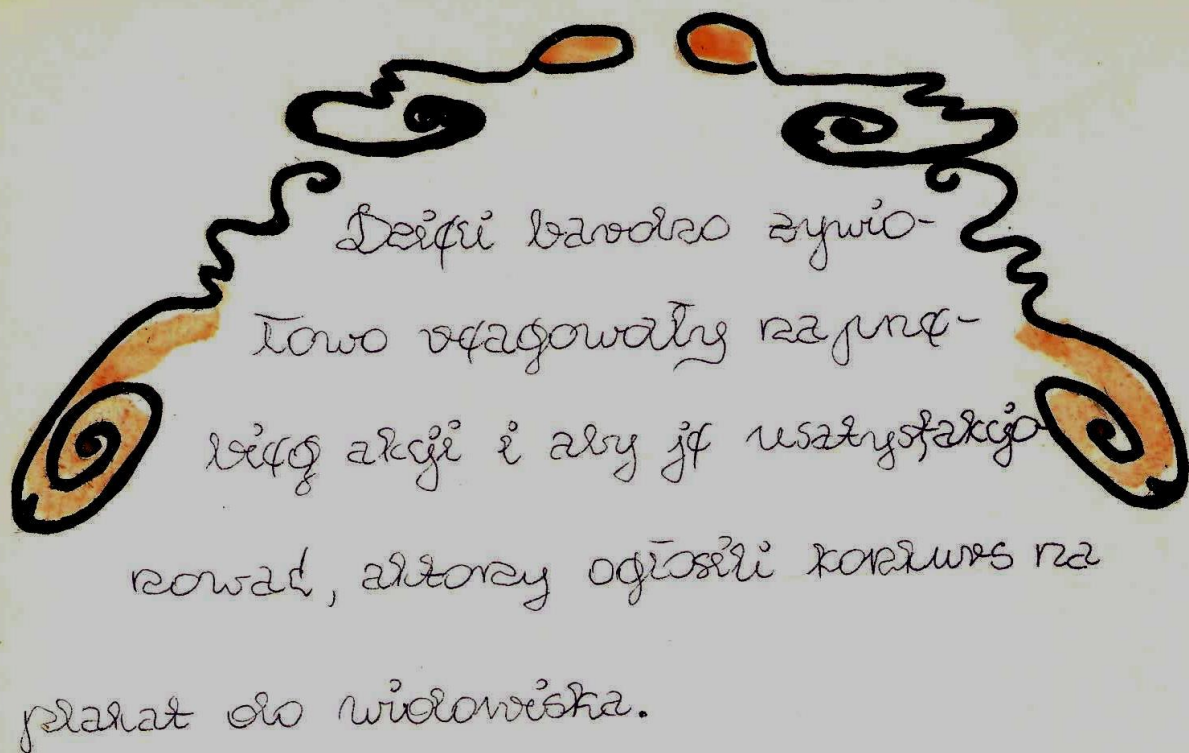 Dzieci bardzo zywio-
łowo reagowały na prze-
bieg akcji i aby je usatysfakcjo
nować, aktorzy ogłosili konkurs na
plakat do widowiska.